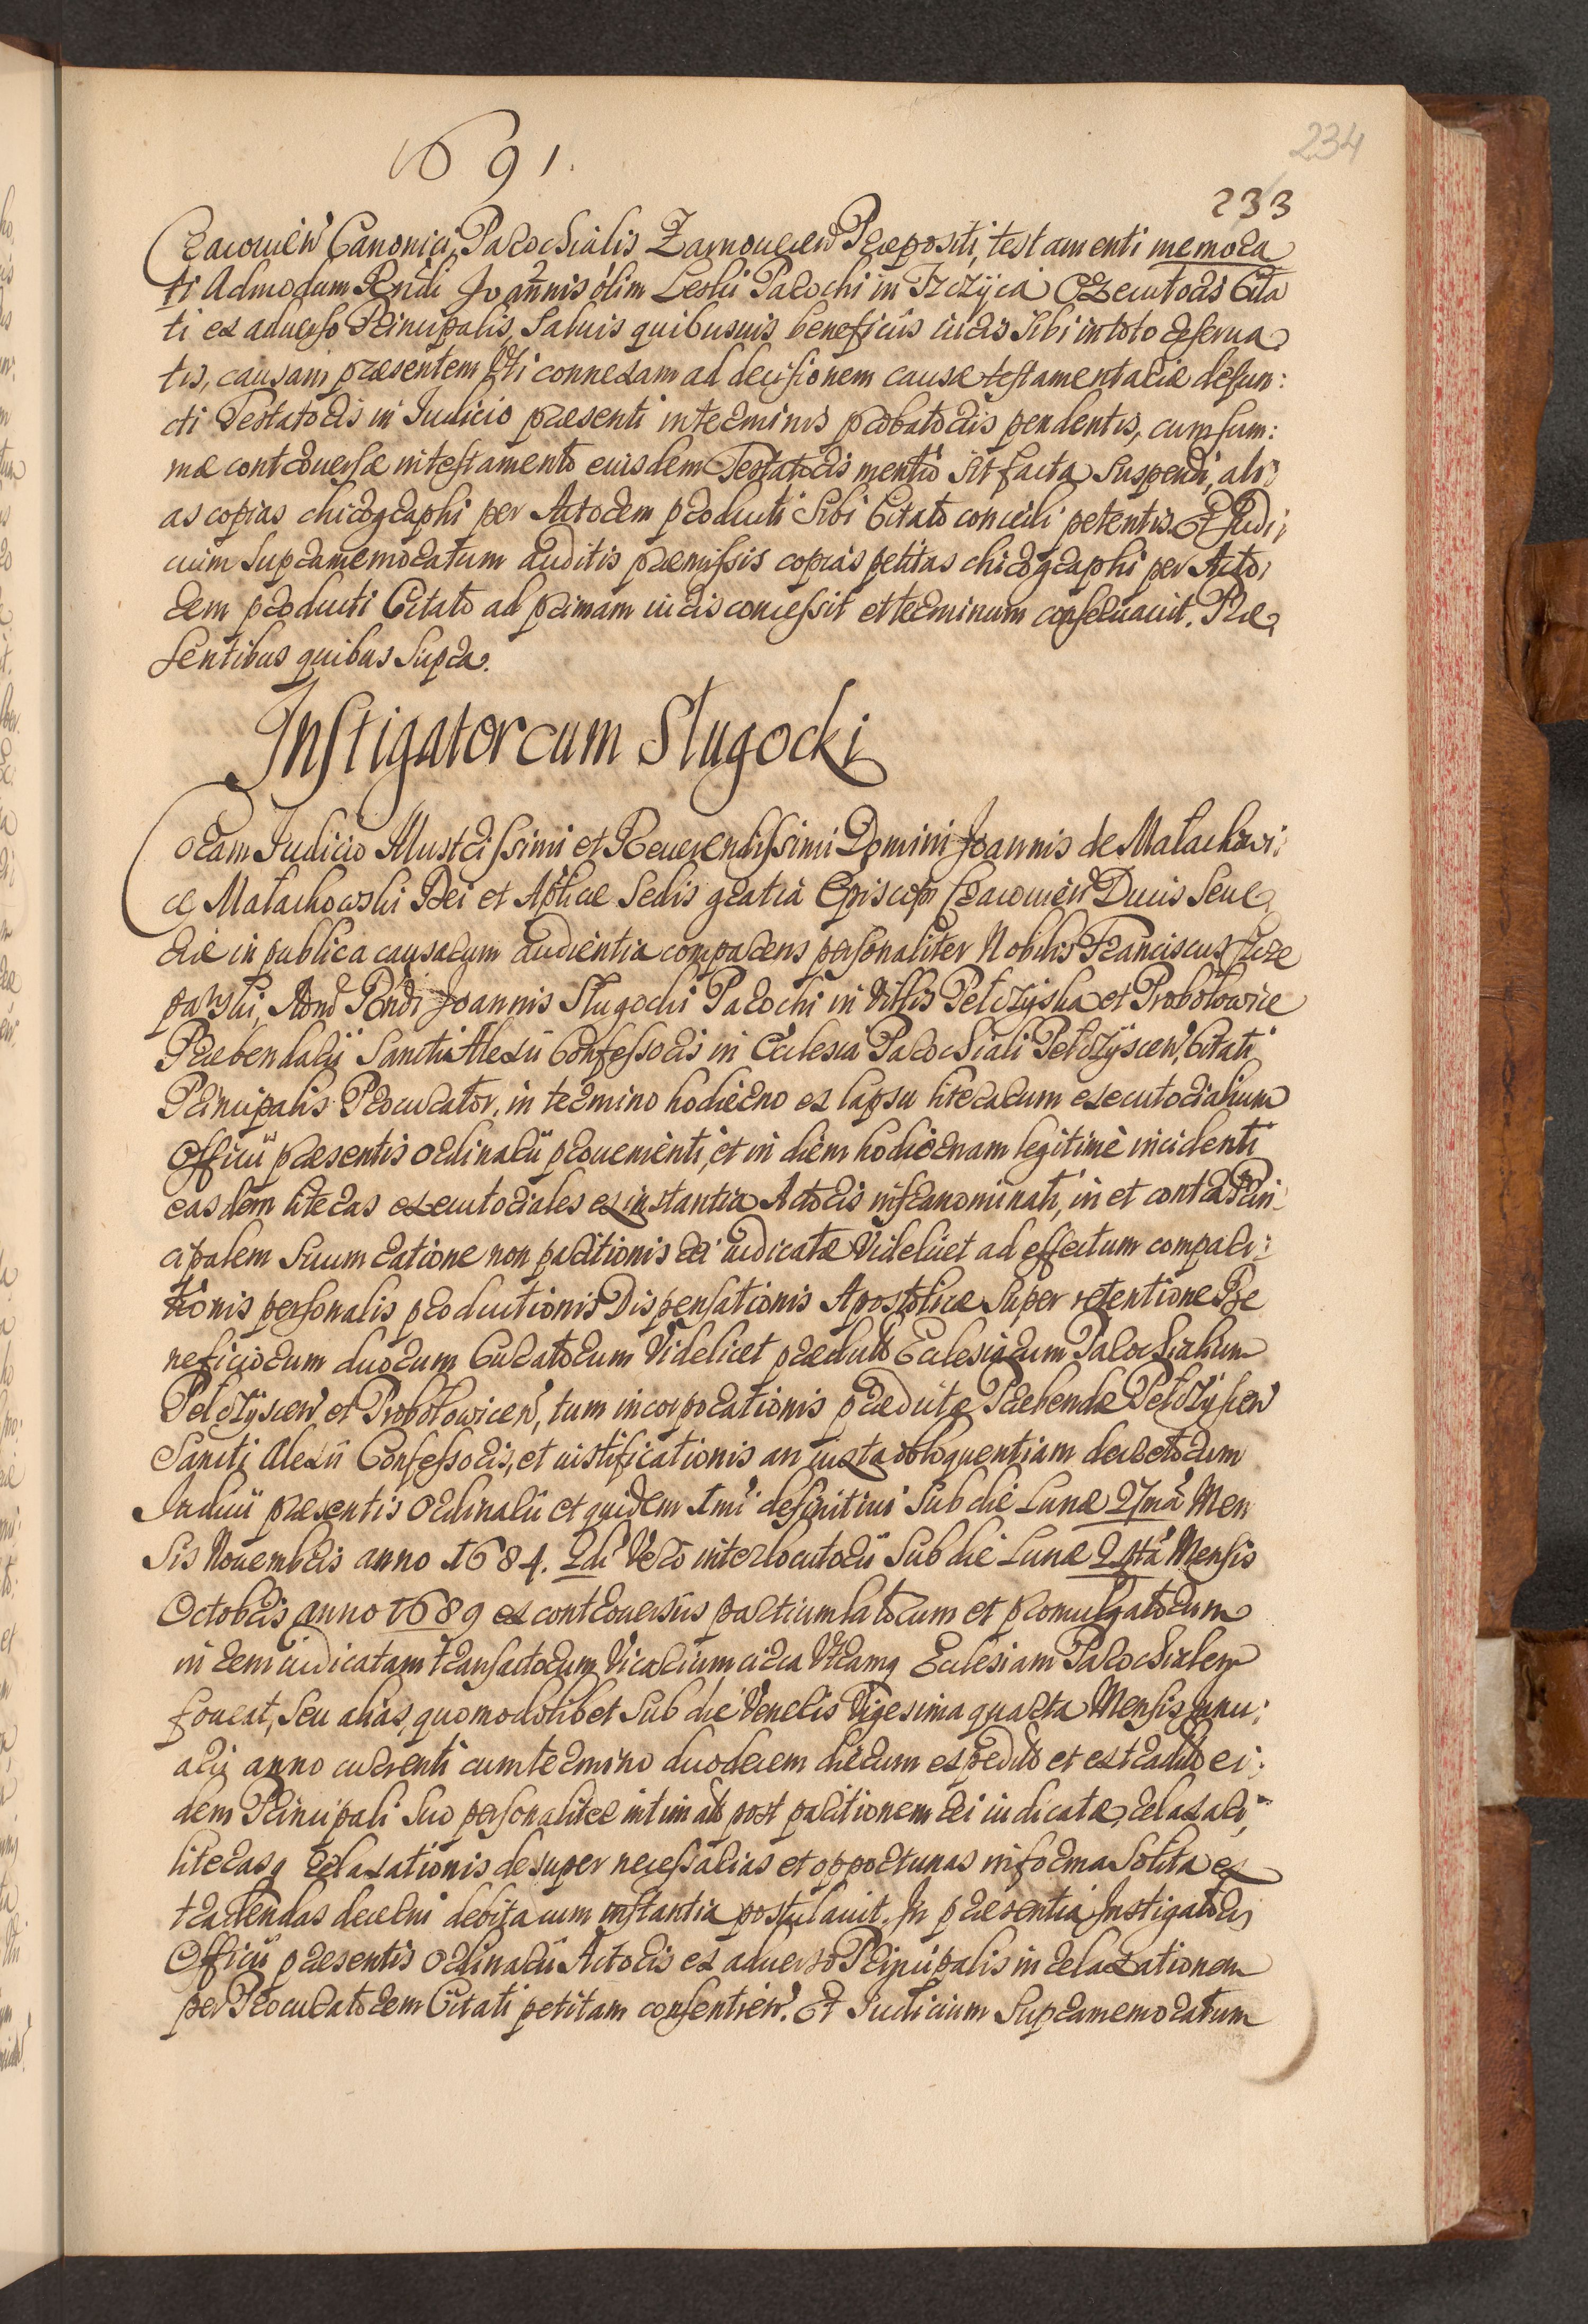 1691.
234
233
Cracovien Canonici, Parochialis Zarnovecen Præpositi, testamenti memora
ti Admodum Rndi Joannis olim Leski Parochi in Trzyca Executoris Cita
ti ex adverso Principalis, Salvis quibusvis beneficiis iuris sibi in toto reserva
tis, causam præsentem Uti connexam ad decisionem causæ testamentariæ defun:
cti Testatoris in Iudicio præsenti in terminis probatoris pendentis, cum sum:
mæ controversæ in testamento eiusdem Testatoris mentio sit facta Suspendi, ali:
as copias chirographi per Actorem producti Sibi Citato concedi petentis. Et Iudi:
cium Supramemoratum auditis præmissis copias petitas chirographi per Acto:
rem producti Citato ad primam iuris concessit et terminum conservavit. Præ
sentibus quibus Supra.
Instigator cum Slugocki
Coram Iudicio Illustrissimi et Reverendissimi Domini Joannis de Małachowi:
ce Małachowski Dei et Aplicæ Sedis gratia Episcopi Cracovien Ducis Seve
riæ in publica causarum audientia comparens personaliter Nobilis Franciscus Szcze
pański, Admd Rndi Joannis Slugocki Parochi in Villis Pełczyska et Probołowice
Præbendarii Sancti Alexii Confessoris in Ecclesia Parochiali Pełczyscen, Citati
Principalis Procurator, in termino hodierno ex lapsu literarum executorialium
Officii præsentis ordinarii provenienti, et in diem hodiernam legitime incidenti
easdem literas executoriales ex instantia Actoris infranominati, in et contra Prin
cipalem Suum ratione non paritionis rei iudicatæ Videlicet ad effectum compari:
tionis personalis productionis Dispensationis Apostolicæ Super retentione Be
neficiorum duorum Curatorum Videlicet prædicto Ecclesiarum Parochialium
Pełczyscen et Probołowicen, tum incorporationis prædictæ Præbendæ Pełczyscen
Sancti Alexii Confessoris, et iustificationis an iuxta obloquentiam decretorum
Iudicii præsentis Ordinarii et quidem 1mi definitivi Sub die Lunæ 27ma Men
sis Novembris anno 1684. 2di Vero interlocutorii Sub die Lunæ 21sta Mensis
Octobris anno 1689 ex controversiis partium latorum et promulgatorum
in rem iudicatam transactorum Vicarium circa Utramq Ecclesiam Parochialem
foveat, seu alias, quomodolibet Sub die Veneris Vigesima quarta Mensis Janu:
arii anno currenti cum termino duodecem dierum expedito et extradito ei:
dem Principali Suo personaliter intimato post paritionem rei iudicatæ, relaxari,
literasq relaxationis desuper necessarias et opportunas in forma solita ex
tradendas decerni debita cum instantia postulavit. In præsentia Instigatoris
Officii præsentis Ordinarii Actoris ex adverso Principalis in relaxationem
per Procuratorem Citati petitam consentien. Et Iudicium Supramemoratum